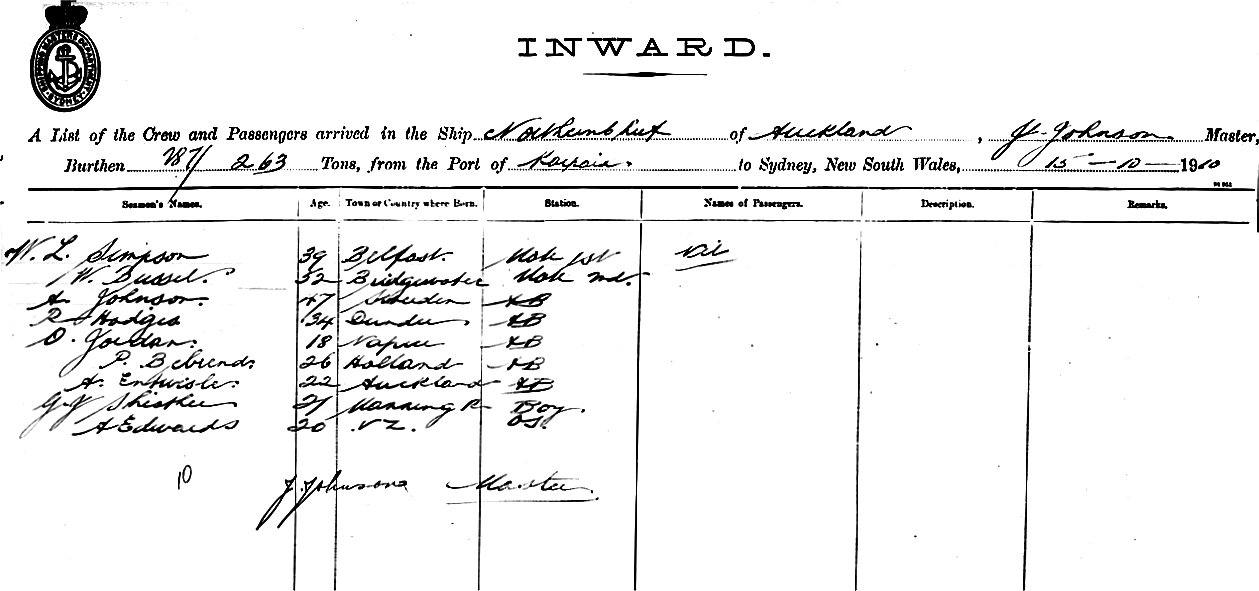 SHIPPING MASTERS DEPARTMENT SYDNEY
INWARD.
A List of the Crew and Passengers arrived in the Ship of Auckland, J. Johnson Master,
Burthen 187/263 Tons, from the Port of to Sydney, New South Wales, 15-10-1910
Seamen's Names. Age. Town or Country where Born. Station. Names of Passengers. Description. Remarks.
W. L. Simpson 39 Belfast. Mate 1st Nil
W. 32 Bridgewater Mate 2nd.
A. Johnson. 47 Sweden AB
R Hodges 34 Dundee AB
O. Jordan. 18 Napier AB
P. Behrends 26 Holland AB
A. Entwisle. 22 Auckland AB
G. 21 Manning R Boy.
A Edwards 20 NZ. OS.
10
J. Johnson Master.